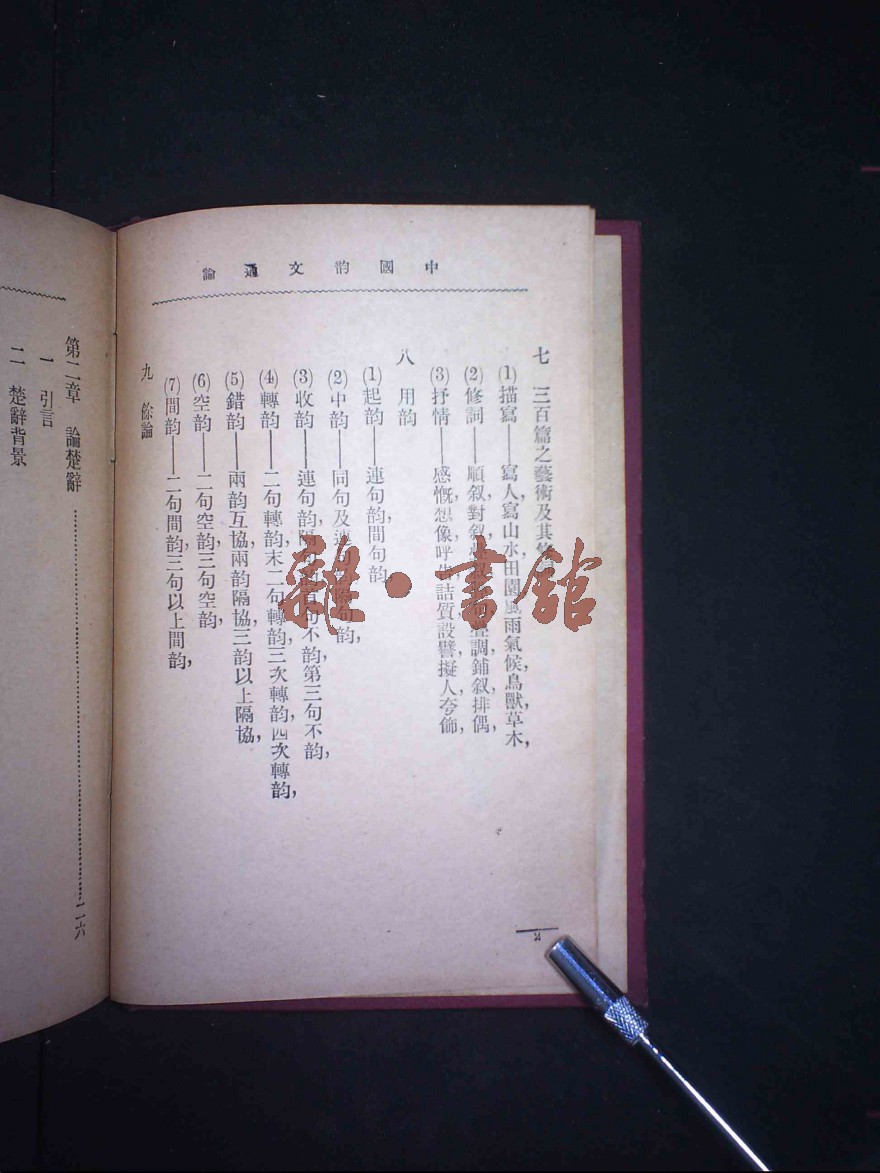 中國韵文通論
七 三百篇之藝術及其
(1)描寫——寫人,寫山水,田園,風雨,氣候,鳥獸,草木,
(2)修詞——順叙,對叙,調,鋪叙,排偶,
(3)抒情——感慨,想像,呼告,詰質,設譬,擬人,夸飾,
八 用韵
(1)起韵——連句韵,間句韵,
(2)中韵——同句及韵,
(3)收韵——連句韵,隔句不韵,第三句不韵,
(4)轉韵——二句轉韵,末二句轉韵,三次轉韵,四次轉韵,
(5)錯韵——兩韵互協,兩韵隔協,三韵以上隔協,
(6)空韵——二句空韵,三句空韵,
(7)間韵——二句間韵,三句以上間韵,
九 餘論
2
第二章 論楚辭……二六
一 引言
二 楚辭背景
雜·書館